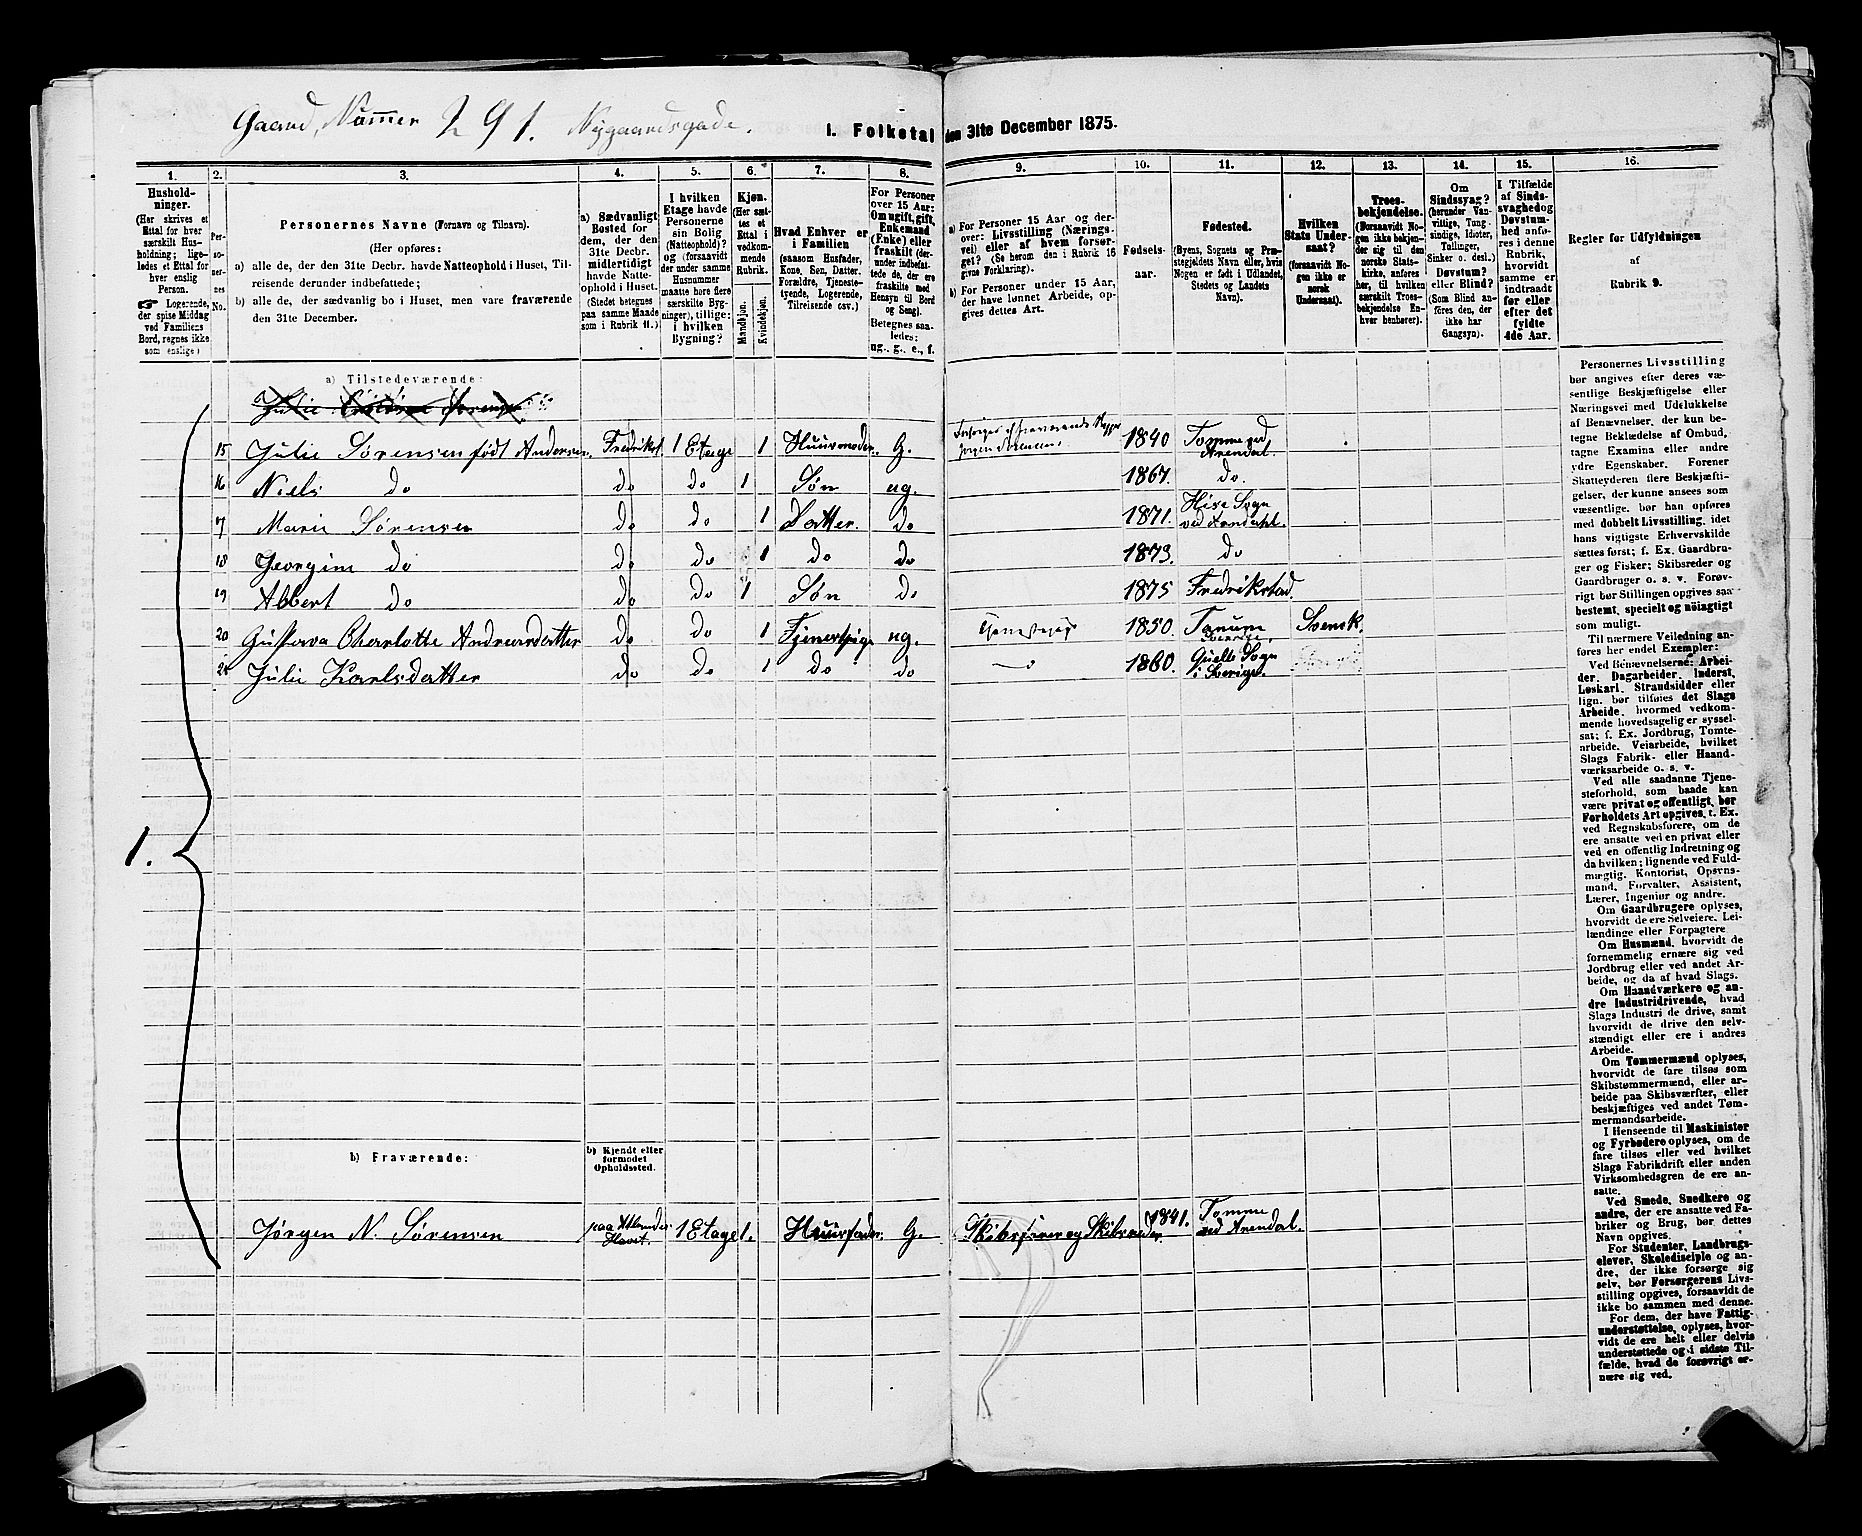 Gaard, Nummer 291. Nygaardsgade.
1. Folketal den 31te December 1875.
1. 2. 3. 4. 5. 6. 7. 8. 9. 10. 11. 12. 13. 14. 15. 16.
Hushold-
ninger.
(Her skrives et
Ettal for hver
særskilt Hus-
holdning; lige-
ledes et Ettal for
hver enslig
Person.
☛ Logerende,
der spise Middag
ved Familiens
Bord, regnes ikke
som enslige)
Per-
so-
ner-
nes
No.
Personernes Navne (Fornavn og Tilnavn).
(Her opføres:
a) alle de, der den 31te Decbr. havde Natteophold i Huset, Til-
reisende derunder indbefattede;
b) alle de, der sædvanlig bo i Huset, men vare fraværende
den 31te December.
a) Sædvanligt
Bosted for
dem, der den
31te Decbr.
midlertidigt
havde Natte-
ophold i Huset.
(Stedet betegnes
paa samme Maade
som i Rubrik 11.)
I hvilken
Etage havde
Personerne
sin Bolig
(Natteophold)?
og (forsaavidt
der under samme
Husnummer
maatte høre flere
særskilte Byg-
ninger), tillige:
i hvilken
Bygning?
Kjøn.
(Her sæt-
tes et
Ettal i
vedkom-
mende
Rubrik.
Mandkjøn.
Kvindekjøn.
Hvad Enhver er
i Familien
(saasom Husfader,
Kone, Søn, Datter.
Forældre, Tjeneste-
tyende, Logerende,
Tilreisende osv.)
For Personer
over 15 Aar:
Om ugift, gift,
Enkemand
(Enke) eller
fraskilt (der-
under indbefat-
tede de, der ere
fraskilte med
Hensyn til Bord
og Seng).
Betegnes saa-
ledes:
ug., g., e., f.
a) For Personer 15 Aar og der-
over: Livsstilling (Nærings-
vei) eller af hvem forsør-
get? (Se herom den i Rubrik 16
givne Forklaring).
b) For Personer under 15 Aar,
der have lønnet Arbeide, op-
gives dettes Art.
Fødsels-
aar.
Fødested.
(Byens, Sognets og Præ-
stegjeldets Navn eller, hvis
Nogen er født i Udlandet,
Stedets og Landets
Navn).
Hvilken
Stats Under-
saat?
(forsaavidt No-
gen ikke er
norsk
Undersaat).
Troes-
bekjendelse.
(Forsaavidt No-
gen ikke bekjen-
der sig til den
norske Stats-
kirke, anføres
her, til hvilken
særskilt Troes-
bekjendelse En-
hver henhører).
Om
Sindssyag?
(herunder Van-
vittige, Tung-
sindige, Idioter,
Tullinger,
Sinker o. desl.)
Døvstum?
eller Blind?
(Som Blind an-
føres den, der
ikke har
Gangsyn).
I Tilfælde
af Sinds-
svaghed og
Døvstum-
hed anfø-
res i denne
Rubrik,
hvorvidt
samme er
indtraadt
før eller
efter det
fyldte
4de Aar.
Regler for Udfyldningen
af
Rubrik 9.
a) Tilstedeværende:
15 Julie Sørensen født Andersen. Fredrikst. 1 Etage 1 Huusmoder. G. Forsørges af fraværende
Jørgen Sørensen 1840 Tomme ved
Arendal.
16 Niels do do do 1 Søn ug. 1867. do.
17 Marie Sørensen do do 1 Datter. do 1871. Hise Sogn
ved Arendal.
18 Georgine do do do 1 do do 1873. do
19 Albert do do do 1 Søn do 1875 Fredrikstad.
20 Gustava Charlotte Andreasdatter do do 1 Tjenestpige ug. Tjenestepige 1850. Tanum
Sverige. Svensk.
21 Julie Karlsdatter do do 1 do do 1860. Quille Sogn
i Sverige.
1.
b) Fraværende:
b) Kjendt eller
formodet
Opholdssted.
Jørgen N. Sørensen paa Atlander
Havet. 1 Etage 1. Huusfader. G. Skibsfører og Skibsreder 1841. Tomme
ved Arendal.
Personernes Livsstilling
bør angives efter deres væ-
sentlige Beskjæftigelse eller
Næringsvei med Udelukkelse
af Benævnelser, der kun be-
tegne Beklædelse af Ombud,
tagne Examina eller andre
ydre Egenskaber. Forener
Skatteyderen flere Beskjæfti-
gelser, der kunne ansees som
væsentlige, bør han opføres
med dobbelt Livsstilling, idet
hans vigtigste Erhvervskilde
sættes først; f. Ex. Gaardbru-
ger og Fisker; Skibsreder og
Gaardbruger o. s. v. Forøv-
rigt bør Stillingen opgives saa
bestemt, specielt og nøiagtigt
som muligt.
Til nærmere Veiledning an-
føres her endel Exempler:
Ved Benævnelserne: Arbei-
der, Dagarbeider, Inderst,
Løskarl, Strandsidder eller
lign. bør tilføies det Slags
Arbeide, hvormed vedkom-
mende hovedsagelig er syssel-
sat; f. Ex. Jordbrug, Tomte-
arbeide, Veiarbeide, hvilket
Slags Fabrik- eller Haand-
værksarbeide o. s. v.
Ved alle saadanne Tjene-
steforhold, som baade kan
være privat og offentligt, bør
Forholdets Art opgives, t. Ex.
ved Regnskabsførere, om de
ere ansatte ved en privat eller
ved en offentlig Indretning og
da hvilken; lignende ved Fuld-
mægtig, Kontorist, Opsyns-
mand, Forvalter, Assistent,
Lærer, Ingeniør og andre.
Om Gaardbrugere oplyses,
hvorvidt de ere Selveiere, Lei-
lændinge eller Forpagtere
Om Husmænd, hvorvidt de
fornemmelig ernære sig ved
Jordbrug eller ved andet Ar-
beide, og da af hvad Slags.
Om Haandværkere og an-
dre Industridrivende, hvad
Slags Industri de drive, samt
hvorvidt de drive den selv-
stændigt eller ere i andres
Arbeide.
Om Tømmermænd oplyses,
hvorvidt de fare tilsøs som
Skibstømmermænd, eller ar-
beide paa Skibsværfter, eller
beskjæftiges ved andet Tøm-
mermandsarbeide.
I Henseende til Maskinister
og Fyrbødere oplyses, om de
fare tilsøs eller ved hvilket
Slags Fabrikdrift eller anden
Virksomhedsgren de ere an-
satte.
Ved Smede, Snedkere og
andre, der ere ansatte ved Fa-
briker og Brug, bør dettes
Navn opgives.
For Studenter, Landbrugs-
elever, Skoledisciple og an-
dre, der ikke forsørge sig
selv, bør Forsørgerens Livs-
stilling opgives, forsaavidt de
ikke bo sammen med denne.
For dem, der have Fattig-
understøttelse, oplyses, hvor-
vidt de ere helt eller delvis
understøttede og i sidste Til-
fælde, hvad de forøvrigt er-
nære sig ved.